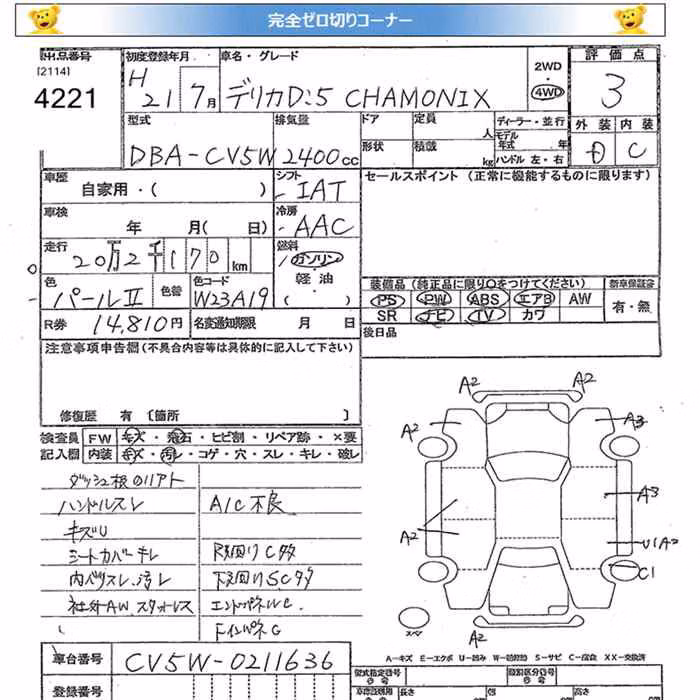 完全ゼロ切りコーナー
出品番号
[2114]
4221
初度登録年月
H 21 7月
車名・グレード
デリカD:5 CHAMONIX
2WD
4WD
評価点
3
型式
DBA-CV5W
排気量
2400cc
ドア
形状
定員
人
積載
kg
ディーラー・並行
モデル年式 年
ハンドル 左・右
外装 内装
D C
車歴
自家用・( )
シフト
IAT
セールスポイント (正常に機能するものに限ります)
車検
年 月( 日)
冷房
AAC
走行
20万2千170km
燃料
ガソリン
軽油
( )
色
パールⅡ
色替
色コード
W23A19
装備品 (純正品に限り○をつけてください)
新車保証書
PS PW ABS エアB AW
有・無
SR ナビ TV カワ
R券
14,810円
名変通知期限 月 日
後日品
注意事項申告欄(不具合内容等は具体的に記入して下さい)
修復歴 有 〔箇所 〕
検査員記入欄
FW キズ・飛石・ヒビ割・リペア跡・×要
内装 キズ・汚レ・コゲ・穴・スレ・キレ・破レ
ハンドルスレ A/C不良
キズU
シートカバーキレ 下廻りC多
内ハリスレ、汚レ 下廻りSC多
社外AW、スタッドレス エンドパネルC
A2 A2
A2 A3
A3
A2 U1A2
C1
スペア
A2
A-キズ E-エクボ U-凹み W-補修跡 S-サビ C-腐食 XX-交換済
車台番号
CV5W-0211636
登録番号
型式指定番号
類別区分番号
長さ
幅
高さ